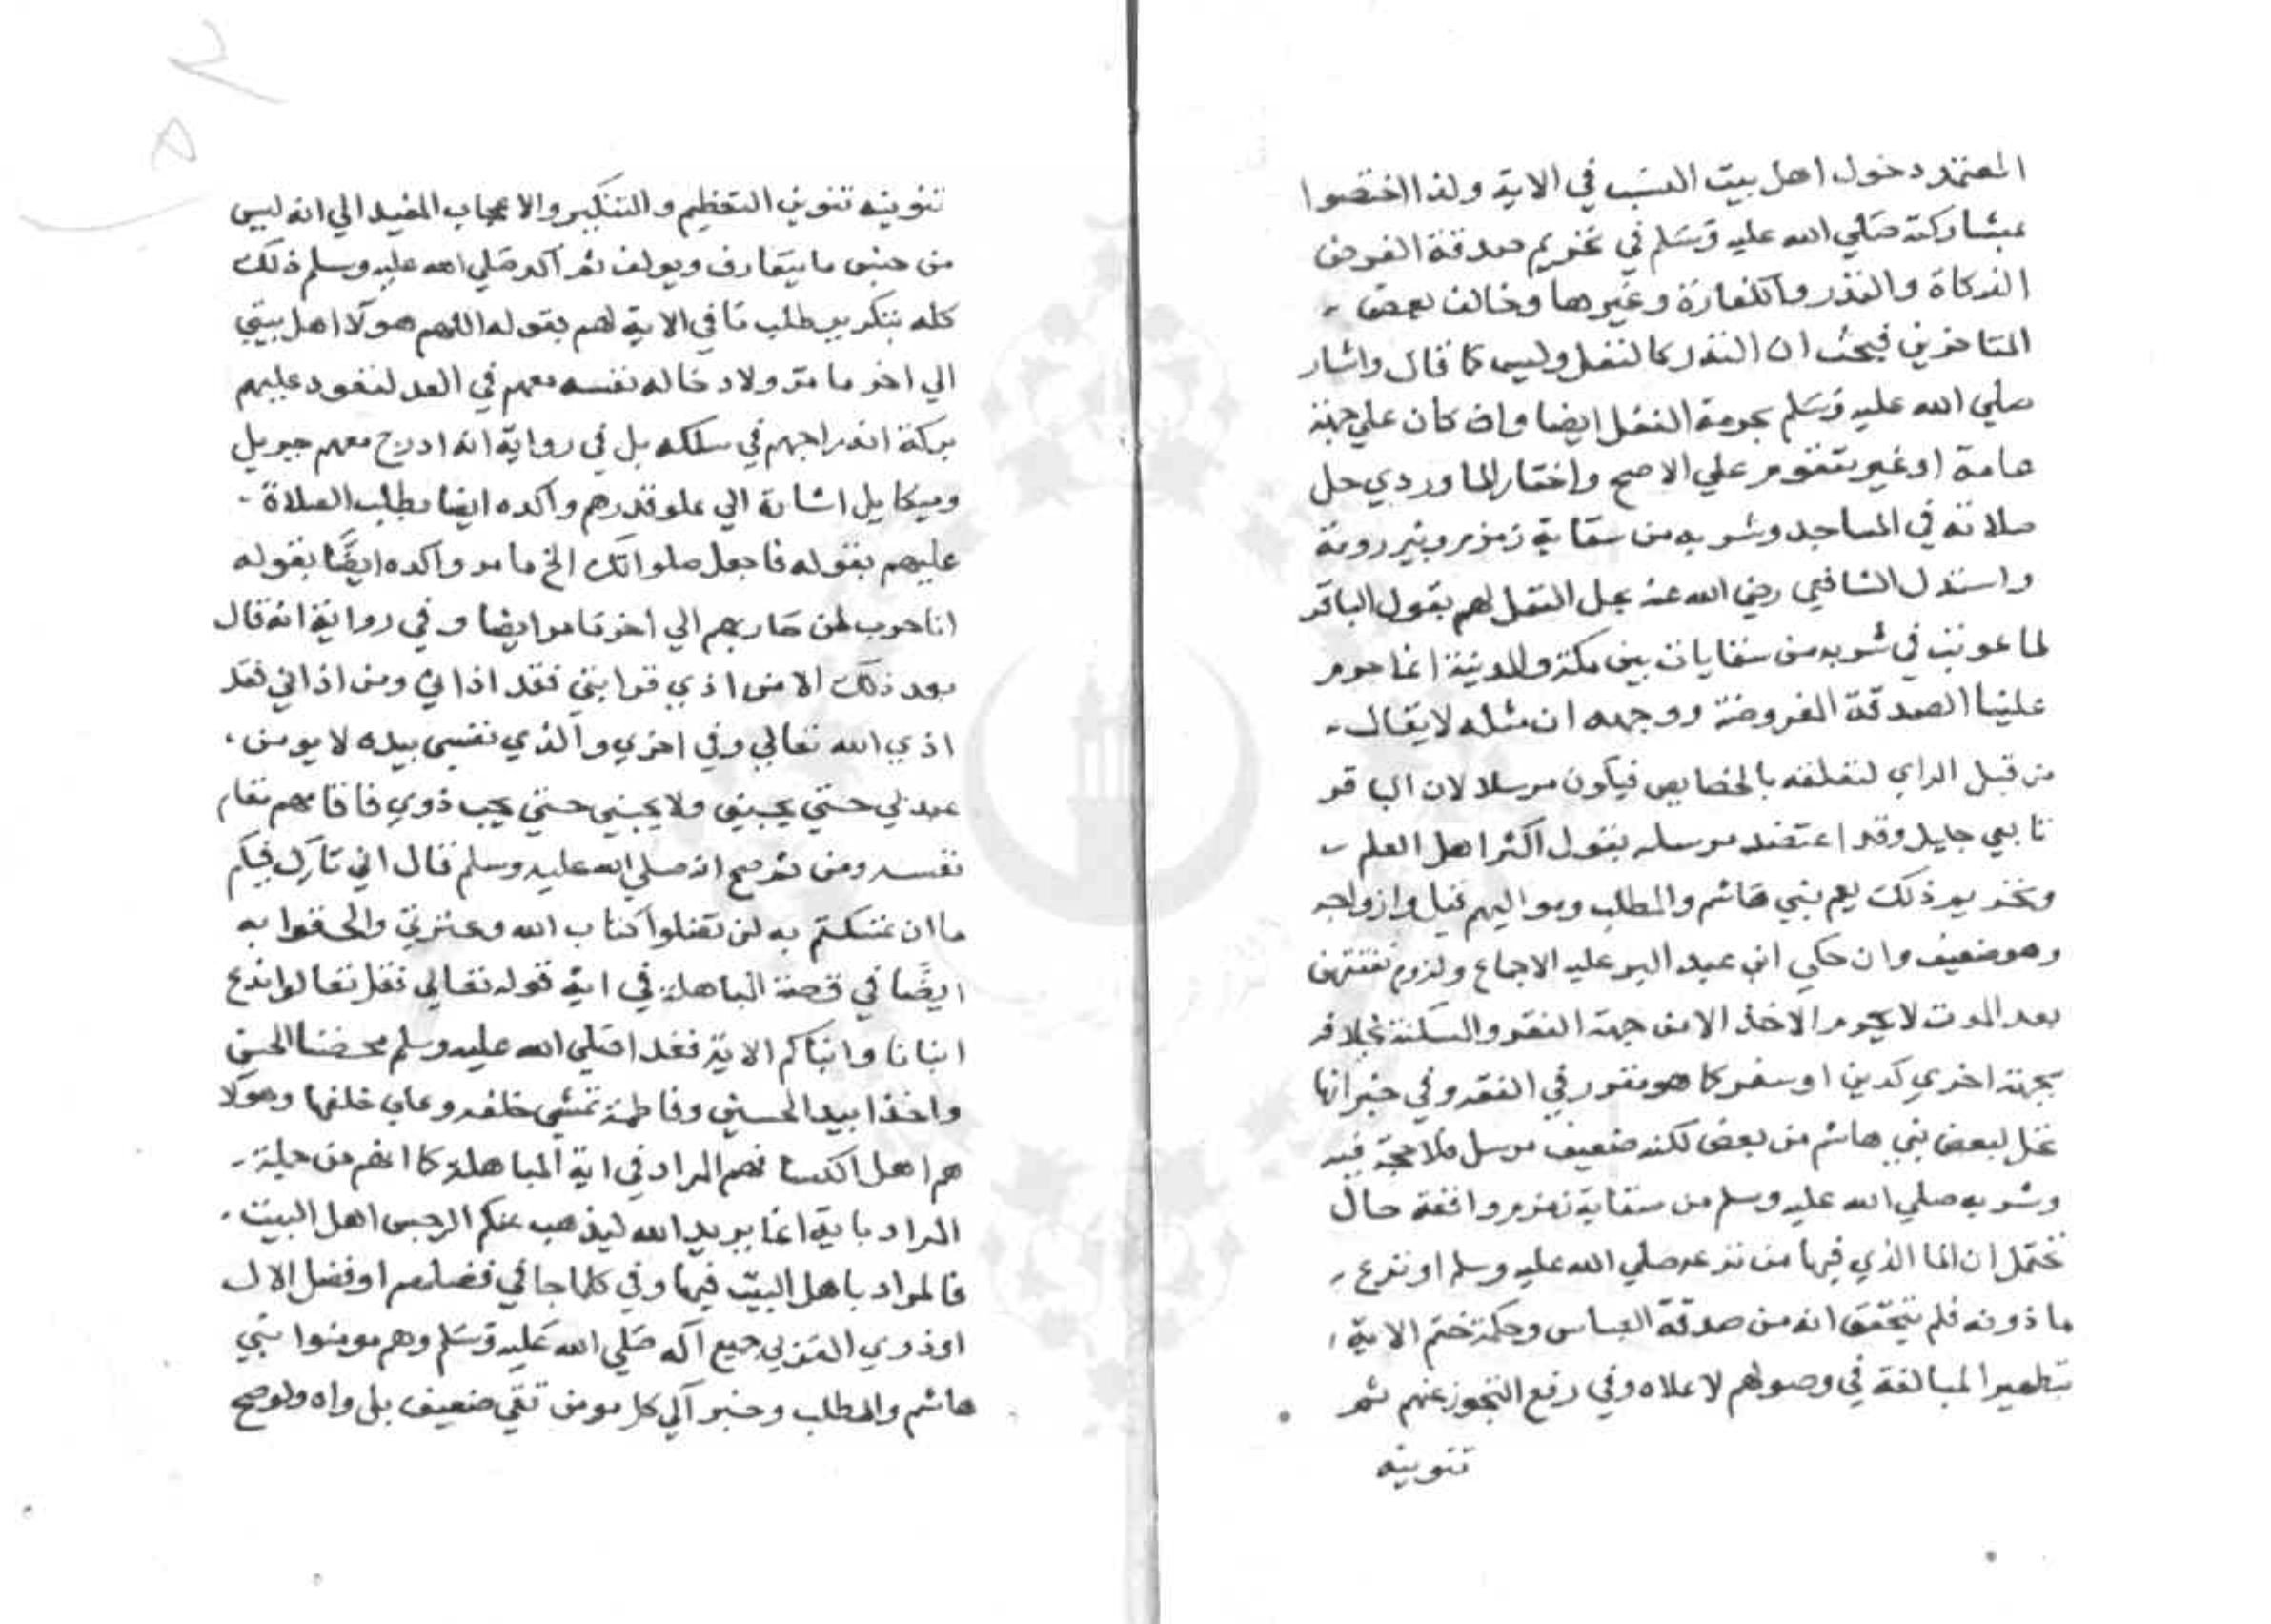 المعتمد دخول اهل بيت النسب في الاية ولذا اختصوا
بمشاركته صلي الله عليه وسلم في تحريم صدقة الفرض
الزكاة والنذر والكفارة وغيرها وخالف بعض
المتاخرين فبحث ان النذر كالنفل وليس كما قال واشار
صلي الله عليه وسلم بحرمة النفل ايضا وان كان علي جهة
عامة او غير متقوم علي الاصح واختار الماوردي حل
صلاته في المساجد وشربه من سقاية زمزم وبير رومة
واستدل الشافعي رضي الله عنه بحل النفل لهم بقول الباقر
لما عوتب في شربه من سقايات بين مكة والمدينة انما حرم
علينا الصدقة المفروضة ووجهه ان مثله لا يقال
من قبل الراي لتعلقه بالخصايص فيكون مرسلا لان الباقر
تابعي جليل وقد اعتضد مرسله بقول اكثر اهل العلم
وتحريم ذلك يعم بني هاشم والمطلب ومواليهم قيل وازواجه
وهو ضعيف وان حكي ابن عبد البر عليه الاجماع ولزوم نفقتهن
بعد الموت لا يحرم الاخذ الا من جهة الفقر والمسكنة بخلافه
بجهة اخري كدين او سفر كما هو مقرر في الفقه وفي خبر انها
تحل لبعض بني هاشم من بعض لكنه ضعيف مرسل فلا حجة فيه
وشربه صلي الله عليه وسلم من سقاية زمزم واقعة حال
تحتمل ان الما الذي فيها من نزعه صلي الله عليه وسلم او نزع
ماذونه فلم يتحقق انه من صدقة العباس وحكمة ختم الاية
بتطهيرا المبالغة في وصولهم لاعلاه وفي رفع التجوز عنهم ثم
تنوينه
تنوينه تنوين التعظيم والتكبير والاعجاب المفيد الي انه ليس
من جنس ما يتعارف ويولف ثم اكد صلي الله عليه وسلم ذلك
كله بتكرير طلب ما في الاية لهم بقوله اللهم هولا اهل بيتي
الي اخر ما مر ولادخاله نفسه معهم في العد لتعود عليهم
بركة اندراجهم في سلكه بل في رواية انه ادرج معهم جبريل
وميكايل اشارة الي علو قدرهم واكده ايضا بطلب الصلاة
عليهم بقوله فاجعل صلواتك الخ ما مر واكده ايضًا بقوله
انا حرب لمن حاربهم الي اخر ما مر ايضا وفي رواية انه قال
بعد ذلك الا من اذي قرابتي فقد اذاني ومن اذاني فقد
اذي الله تعالي وفي اخري والذي نفسي بيده لا يومن
عبد بي حتي يحبني ولا يحبني حتي يحب ذوي فاقامهم مقام
نفسه ومن ثم صح انه صلي الله عليه وسلم قال اني تارك فيكم
ما ان تمسكتم به لن تضلوا كتاب الله وعترتي والحقوا به
ايضًا في قصة المباهلة في اية قوله تعالي فقل تعالوا ندع
ابنانا وابناكم الاية فغدا صلي الله عليه وسلم محتضنا الحسن
واخذا بيد الحسين وفاطمة تمشي خلفه وعلي خلفها وهولا
هم اهل الكسا فهم المراد في اية المباهلة كما انهم من جملة
المراد باية انما يريد الله ليذهب عنكم الرجس اهل البيت
فالمراد باهل البيت فيها وفي كلما جا في فضلهم او فضل الال
او ذوي القربي جميع اله صلي الله عليه وسلم وهم مومنوا بني
هاشم والمطلب وخبر آلي كل مومن تقي ضعيف بل واه ولو صح